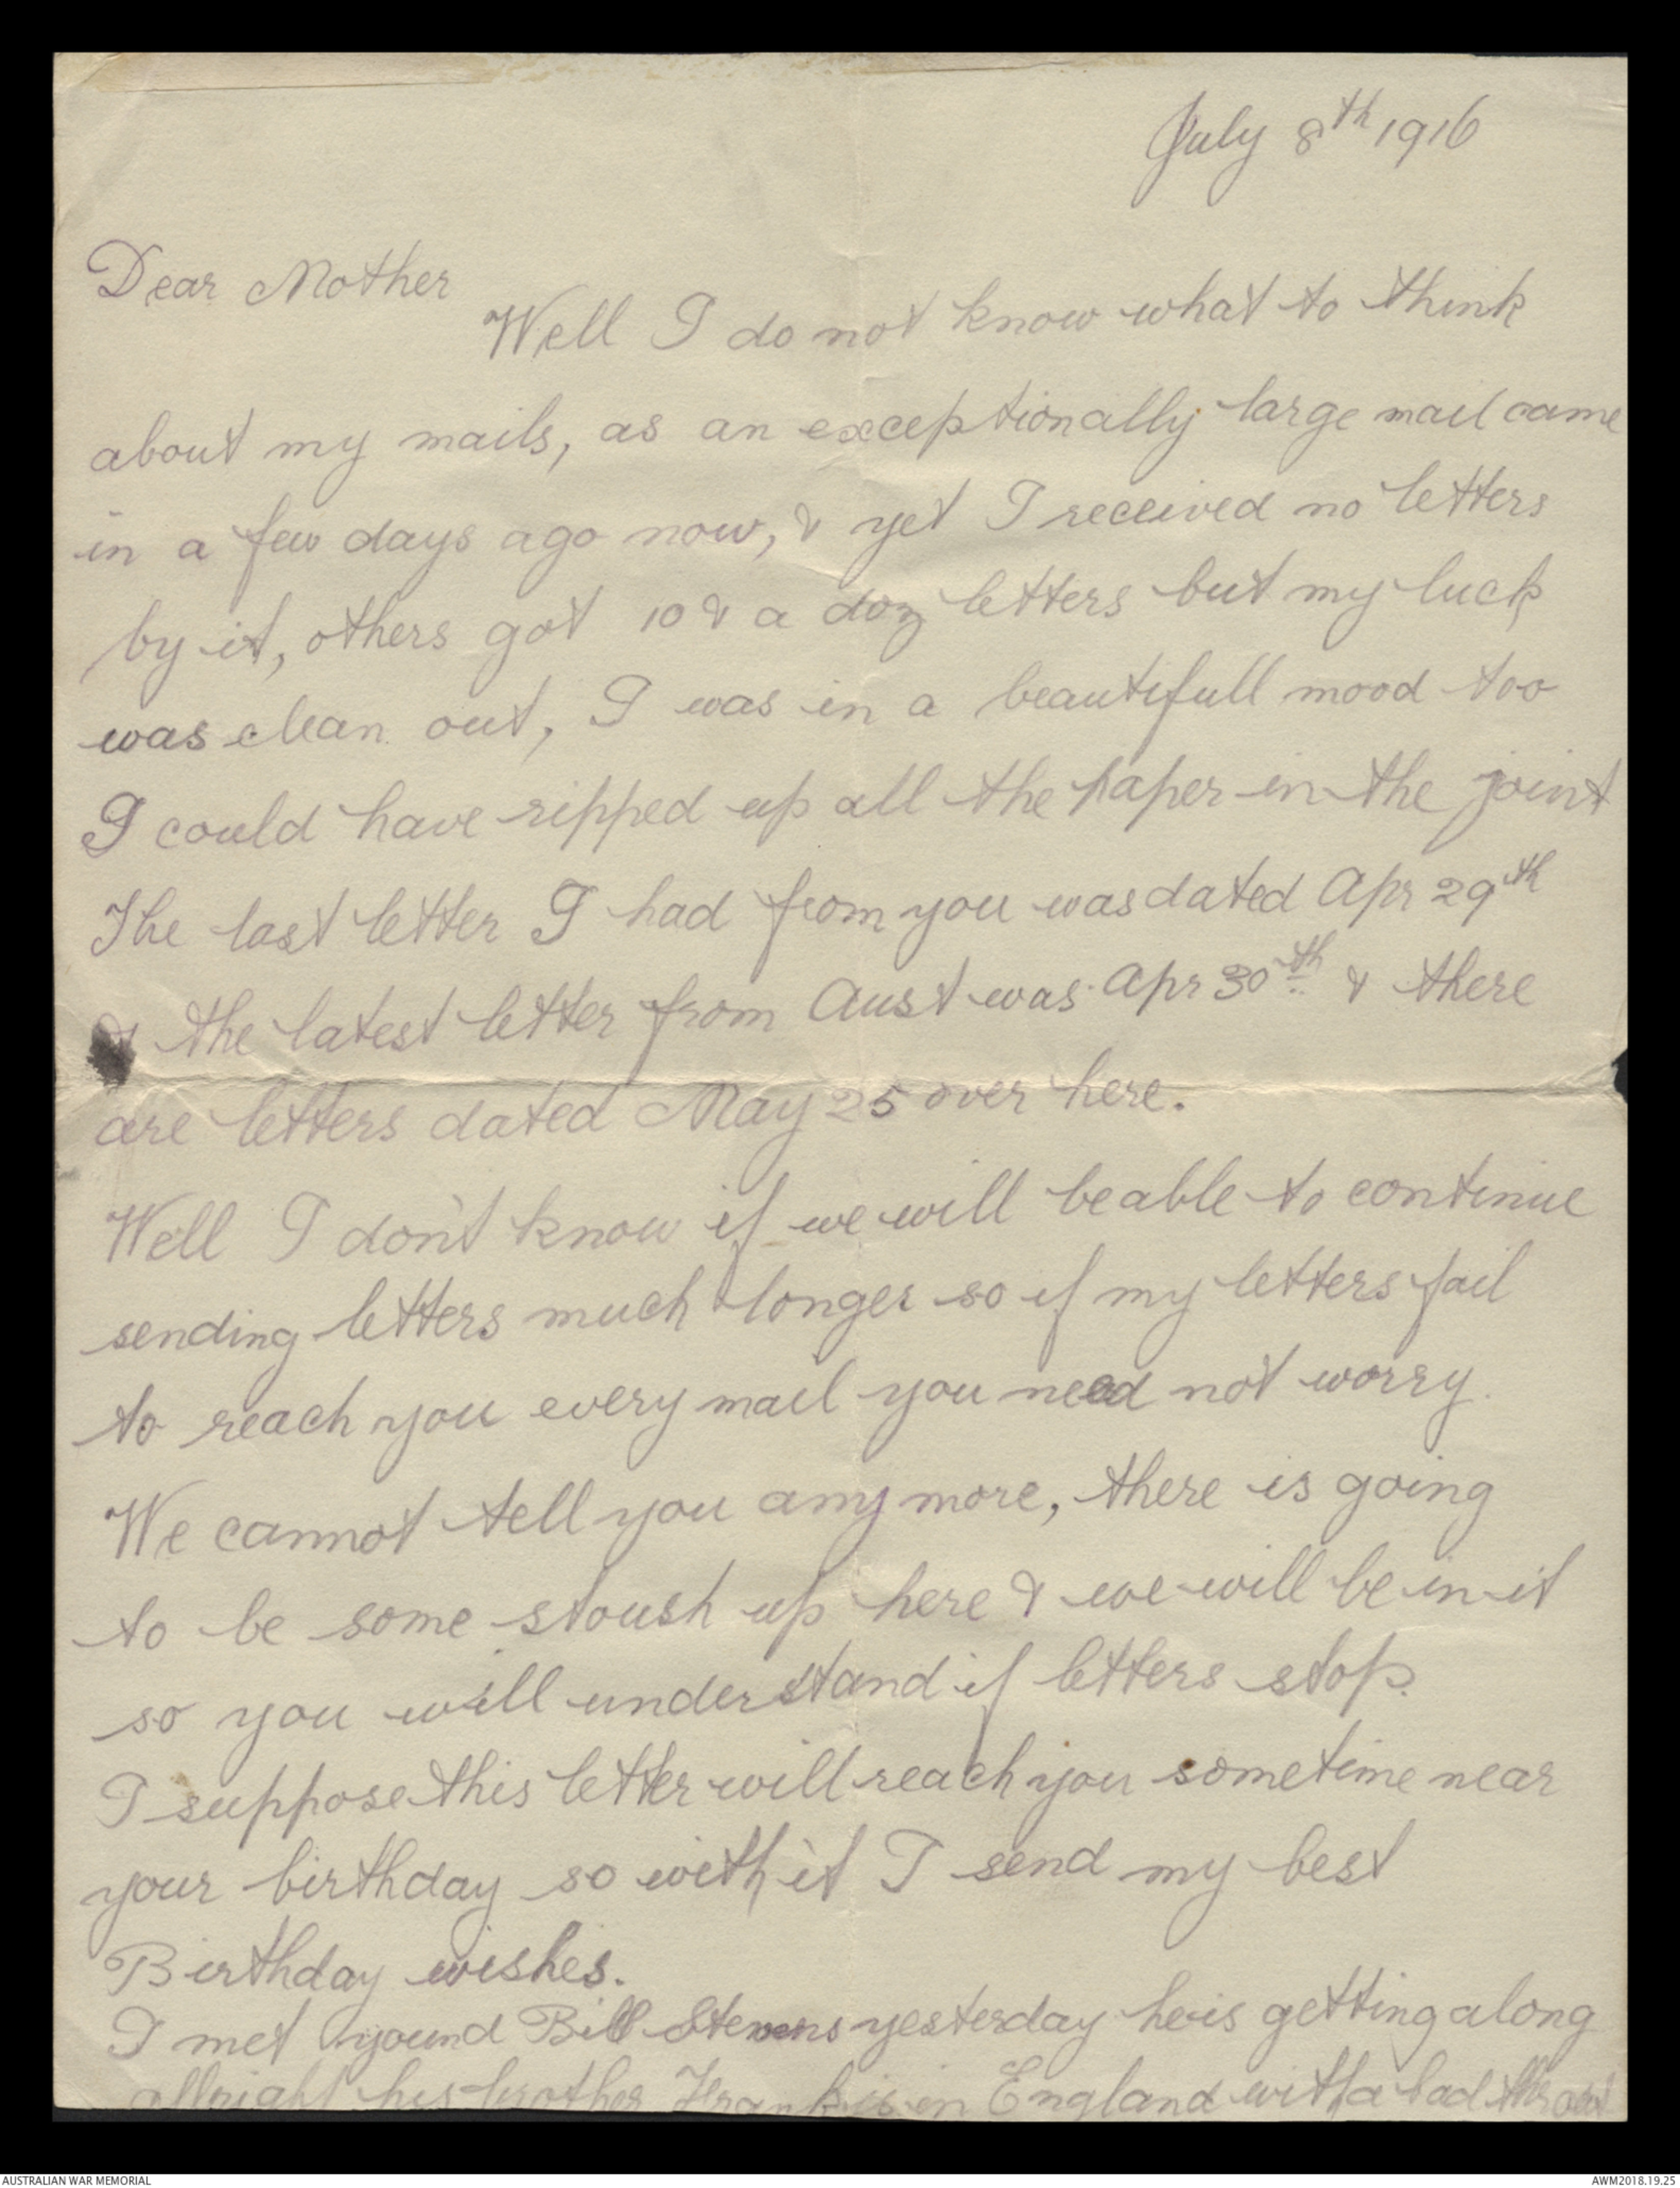 July 8th 1916
Dear Mother
Well I do not know what to think
about my mails, as an exceptionally large mail came
in a few days ago now, & yet I received no letters
by it, others got 10 & a doz letters but my luck
was clean out, I was in a beautifull mood too
I could have ripped up all the paper in the joint
The last letter I had from you was dated Apr 29th
& the latest letter from Aust was Apr 30th & there
are letters dated May 25 over here.
Well I don't know if we will be able to continue
sending letters much longer so if my letters fail
to reach you every mail you need not worry.
We cannot tell you any more, there is going
to be some stoush up here & we will be in it
so you will understand if letters stop.
I suppose this letter will reach you sometime near
your birthday so with it I send my best
Birthday wishes.
I met yound Bill Stevens yesterday he is getting along
allright his brother Frank is in England with a bad throat
AUSTRALIAN WAR MEMORIAL
AWM2018.19.25